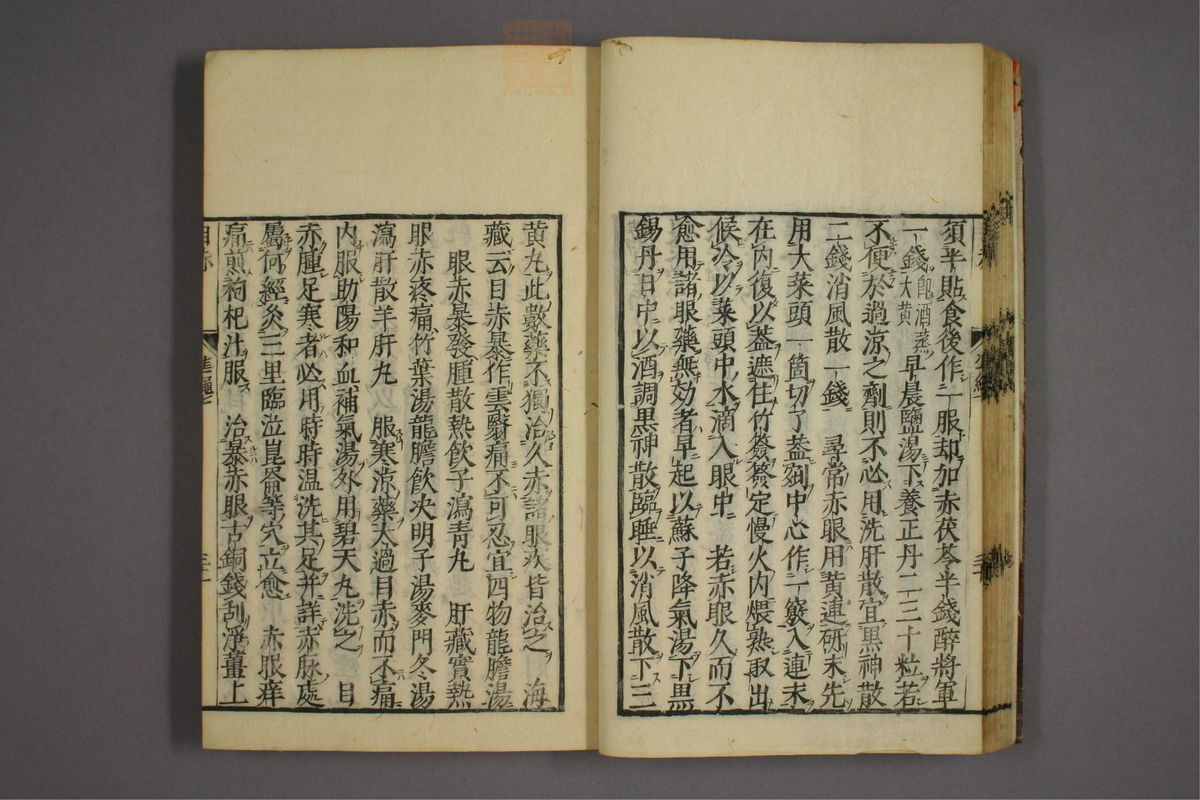 須半貼食後作一服却加赤茯苓半錢醉將軍
一錢即酒蒸大黄早晨鹽湯下養正丹二三十粒若
不便於過涼之劑則不必用洗肝散宜黒神散
二錢消風散一錢 尋常赤眼用黄連研末先
用大菜頭一箇切了葢剜中心作一竅入連末
在内復以葢遮住竹簽簽定慢火内煨熟取出
候冷以菜頭中水滴入眼中 若赤眼久而不
愈用諸眼藥無効者早起以蘇子降氣湯下黒
錫丹日中以酒調黒神散臨睡以消風散下三
黄丸此數藥不獨治久赤諸眼疾皆治之 海
藏云目赤暴作雲翳痛不可忍宜四物龍膽湯
眼赤暴發腫散熱飲子瀉青丸 肝藏實熱
眼赤疼痛竹葉湯龍膽飲决明子湯麥門冬湯
瀉肝散羊肝丸 服寒涼藥太過目赤而不痛
内服助陽和血補氣湯外用碧天丸洗之 目
赤腫足寒者必用時時温洗其足并詳赤脉處
屬何經灸三里臨泣崑崙等穴立愈 赤眼痒
痛煎枸杞汁服 治暴赤眼古銅錢刮淨薑上
目赤